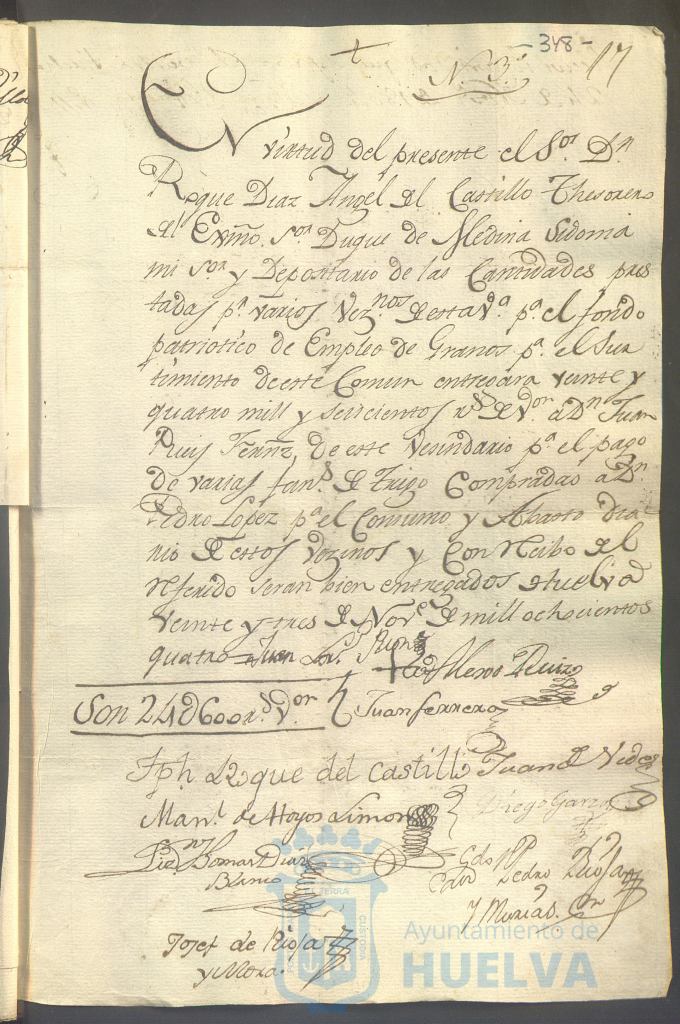 - 348 -
N. 3.º 17
En virtud del presente el S.or D.n
Roque Diaz Angel del Castillo Thesorero
del Exmo. S.or Duque de Medina Sidonia
mi S.or y Depositario de las Cantidades pres
tadas p.a varios Vez.nos de esta V.a p.a el fondo
patriotico de Empleo de Granos p.a el Sur
timiento de este Comun entregara veinte y
quatro mill y seiscientos r.s de v.on a D.n Juan
Ruis Fernz, de este Vecindario p.a el pago
de varias fan.s de Trigo Compradas a D.n
Pedro Lopez p.a el Consumo y Abasto Dia
rio de estos Vezinos y Con Recibo del
referido seran bien entregados Huelva
veinte y tres de Nov.e de mill ochocientos
quatro
Son 24d600 r.s v.on
Juan ferrera
Jph. Roque del Castillo Juan de Vides
Man.l de Hoyos Limon Diego Garza
Thomas Diaz
Blanco
Pedro Rioja
Josef de Rioja
y Mora.
Ayuntamiento de
HUELVA